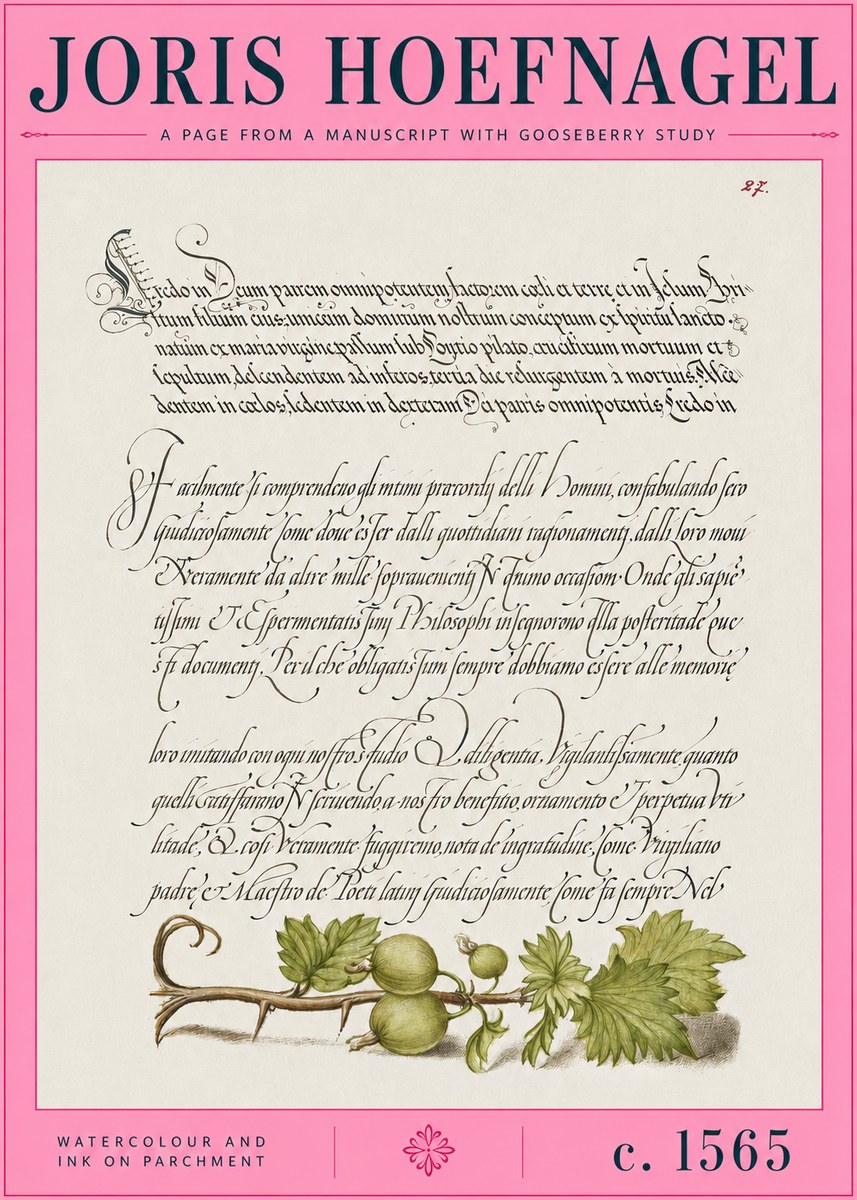 JORIS HOEFNAGEL
A PAGE FROM A MANUSCRIPT WITH GOOSEBERRY STUDY
27.
Credo in Deum patrem omnipotentem, factorem cœli et terre, et in Jesum Chri
stum filium eius: unicum dominum nostrum conceptum ex spiritu sancto.
natum ex maria virgine passum sub Pontio pilato, crucifixum mortuum et
sepultum, descendentem ad inferos, tertia die resurgentem à mortuis. Ascē
dentem in cœlos, sedentem in dexteram Dei patris omnipotentis, Credo in
Facilmente si comprendeno gli intimi præcordij delli Homini, confabulando sero
Giudiciosamente Come doue esser dalli quottidiani ragionamenti, dalli loro moui
Veramente da altre mille soprauenienti occasioni. Onde gli sapiē
tissimi Et Espermentatissimi Philosophi insegnorono Alla posteritade que
sti documenti. Per il che obligatissimi sempre dobbiamo essere alle memorie
loro imitando con ogni nostro studio Et diligentia, Vigilantissamente, quanto
quelli scriuendo, a nostro benefitio, ornamento Et perpetua vti
litade, Et cosi Veramente fuggiremo, nota de ingratudine, Come Virgiliano
padre, et Maestro de Poeti latini Giudiciosamente, Come fa sempre Nel
WATERCOLOUR AND
INK ON PARCHMENT
c. 1565